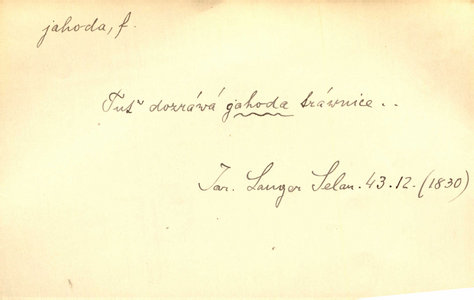 jahoda, f.
Tuť dozrává gahoda trávnice..
Jar. Langer Selan. 43.12. (1830)